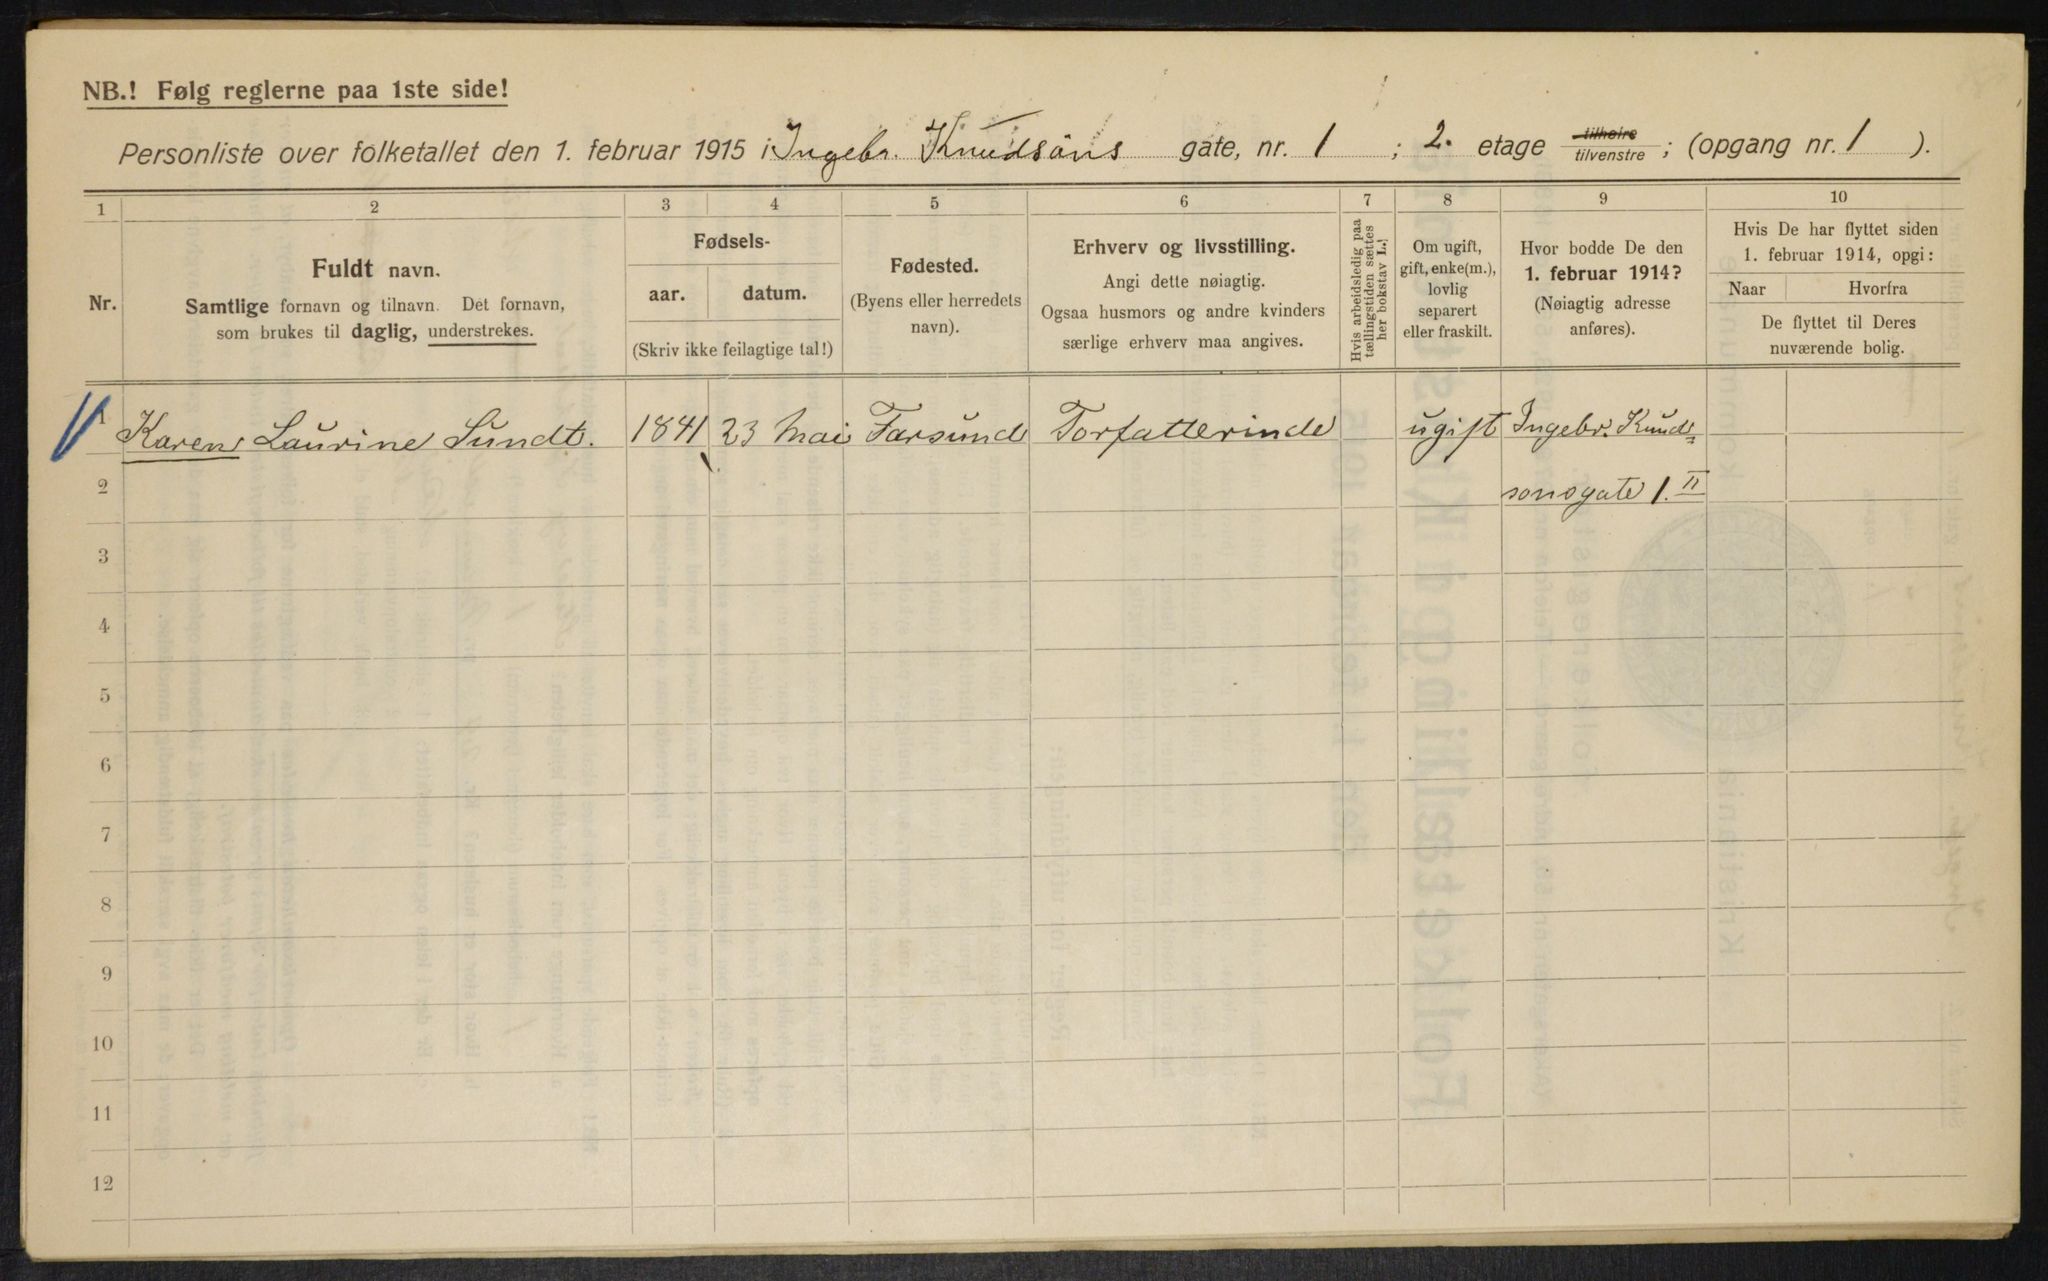 NB.! Følg reglerne paa 1ste side!
Personliste over folketallet den 1. februar 1915 i Ingebr. Knudsøns gate, nr. 1 ; 2. etage tilhøire tilvenstre ; (opgang nr. 1 ).
1 2 3 4 5 6 7 8 9 10
Nr.
Fuldt navn.
Samtlige fornavn og tilnavn. Det fornavn,
som brukes til daglig, understrekes.
Fødsels-
aar. datum.
(Skriv ikke feilagtige tal!)
Fødested.
(Byens eller herredets
navn).
Erhverv og livsstilling.
Angi dette nøiagtig.
Ogsaa husmors og andre kvinders
særlige erhverv maa angives.
Hvis arbeidsledig paa
tællingstiden sættes
her bokstav L.)
Om ugift,
gift, enke(m.),
lovlig
separert
eller fraskilt.
Hvor bodde De den
1. februar 1914?
(Nøiagtig adresse
anføres).
Hvis De har flyttet siden
1. februar 1914, opgi:
Naar Hvorfra
De flyttet til Deres
nuværende bolig.
1 Karen Laurine Sundt. 1841 23 Mai Farsund Forfatterinde ugift Ingebr. Knud=
2 sønsgate 1. II
3
4
5
6
7
8
9
10
11
12